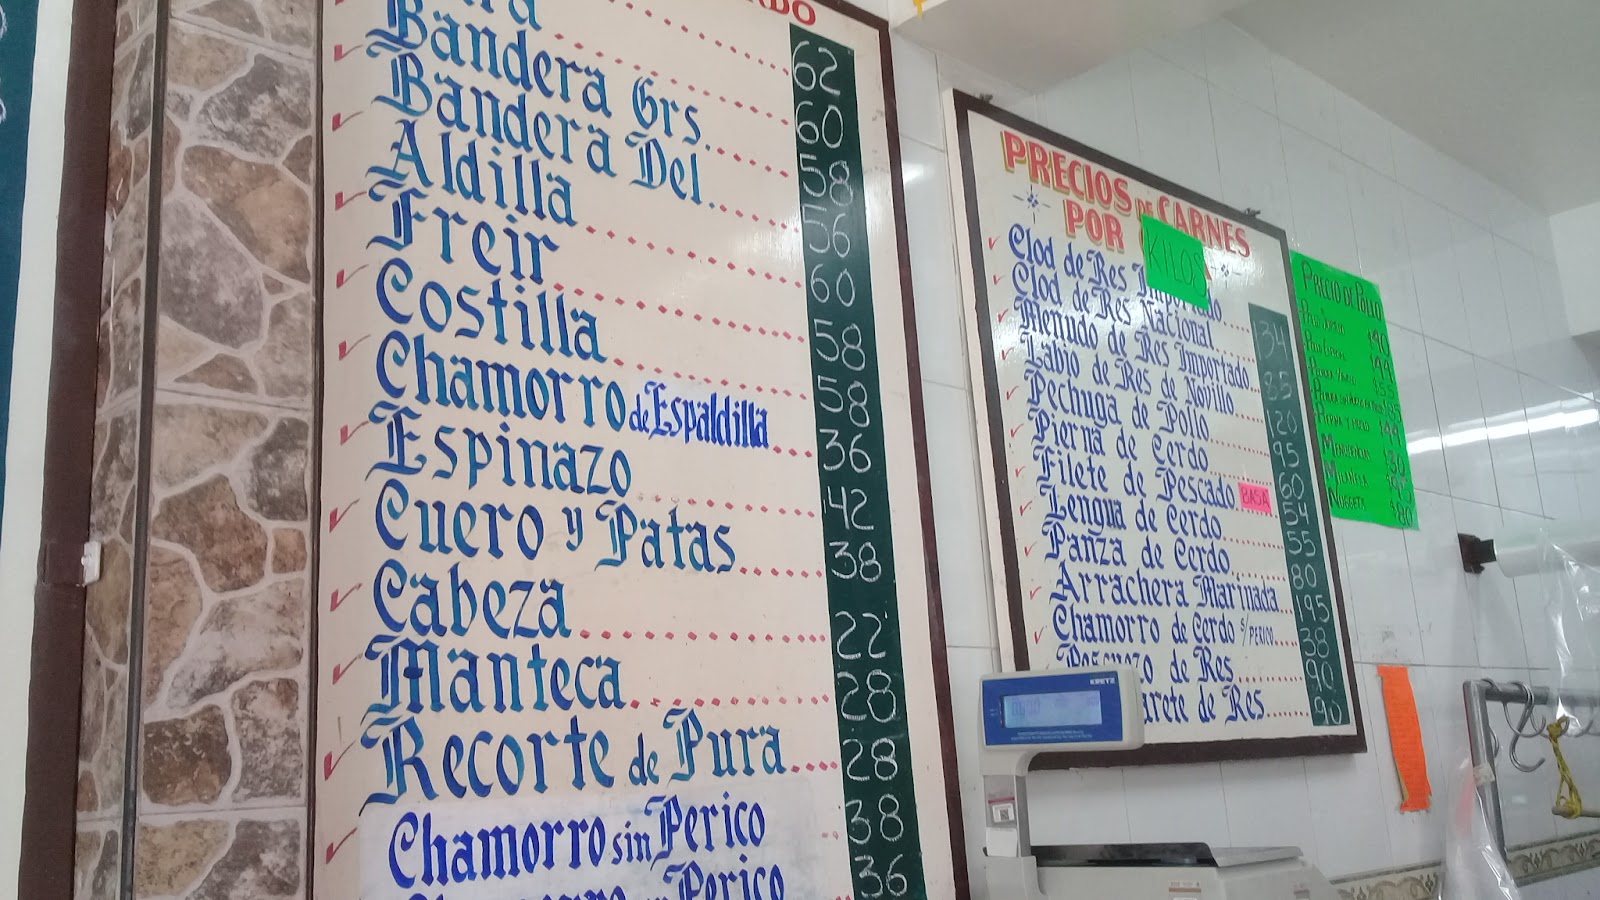 62
60
Bandera Grs. 58
Bandera Del. 56
Aldilla 60
Freir 58
Costilla 58
Chamorro de Espaldilla 36
Espinazo 42
Cuero y Patas 38
Cabeza 22
Manteca 28
Recorte de Pura 28
Chamorro sin Perico 38
Perico 36
PRECIOS DE CARNES
POR
KILOS
Clod de Res
Clod de Res Nacional 134
Menudo de Res Importado 85
Labio de Res de Novillo 120
Pechuga de Pollo 95
Pierna de Cerdo 60
Filete de Pescado BASA 54
Lengua de Cerdo 55
Panza de Cerdo 80
Arrachera Marinada 195
Chamorro de Cerdo S/PERICO 38
de Res 90
de Res 90
PRECIO DE POLLO
PIERNA Y MUSLO
MILANESA
NUGGETS